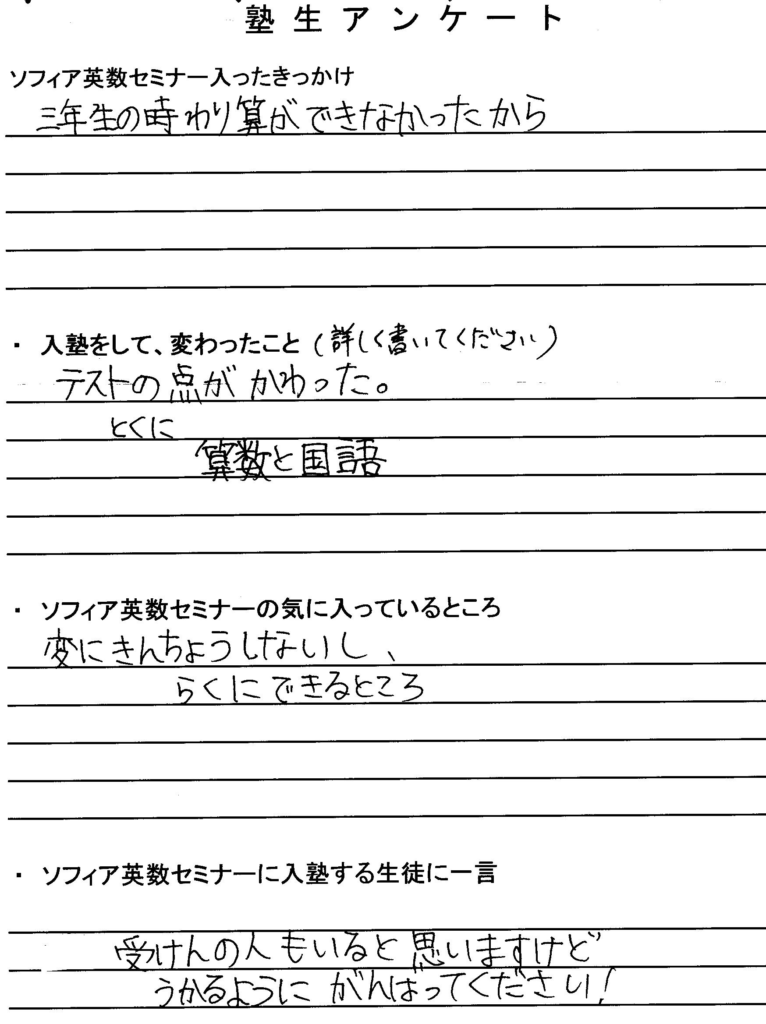 塾生アンケート
ソフィア英数セミナー入ったきっかけ
三年生の時わり算ができなかったから
・ 入塾をして、変わったこと（詳しく書いてください）
テストの点がかわった。
とくに
算数と国語
・ ソフィア英数セミナーの気に入っているところ
変にきんちょうしないし、
らくにできるところ
・ ソフィア英数セミナーに入塾する生徒に一言
受けんの人もいると思いますけど
うかるようにがんばってください！